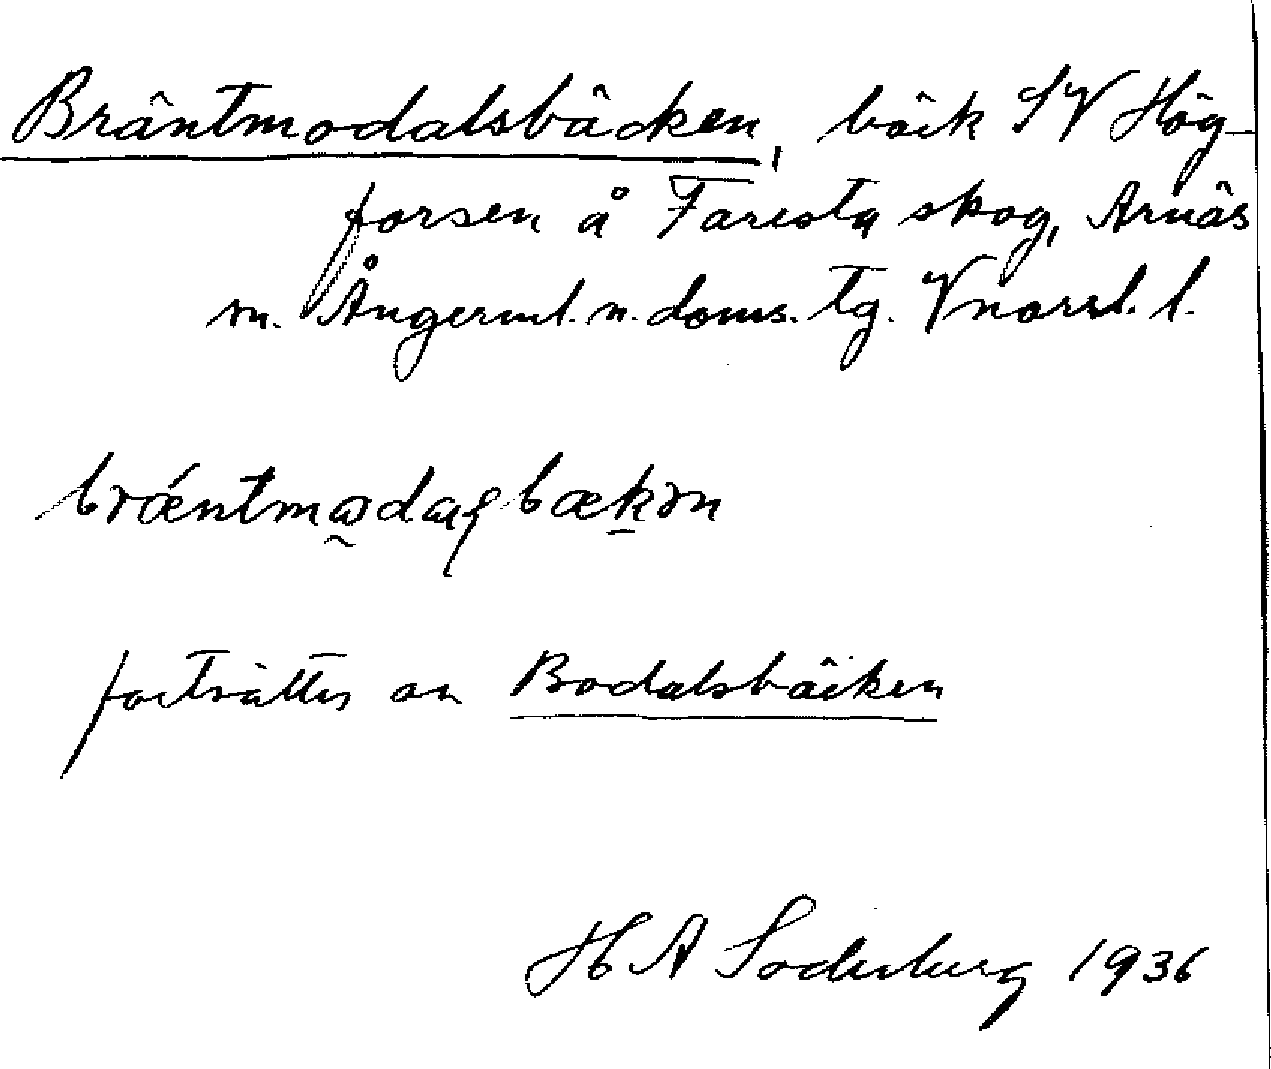 Bräntmodalsbäcken, bäck SV Hög-
forsen å Faresta skog, Arnäs
sn. Ångerml. n. doms. tg. Vnorrl. l.
fortsätter on Bodalsbäcken
H A Söderberg 1936